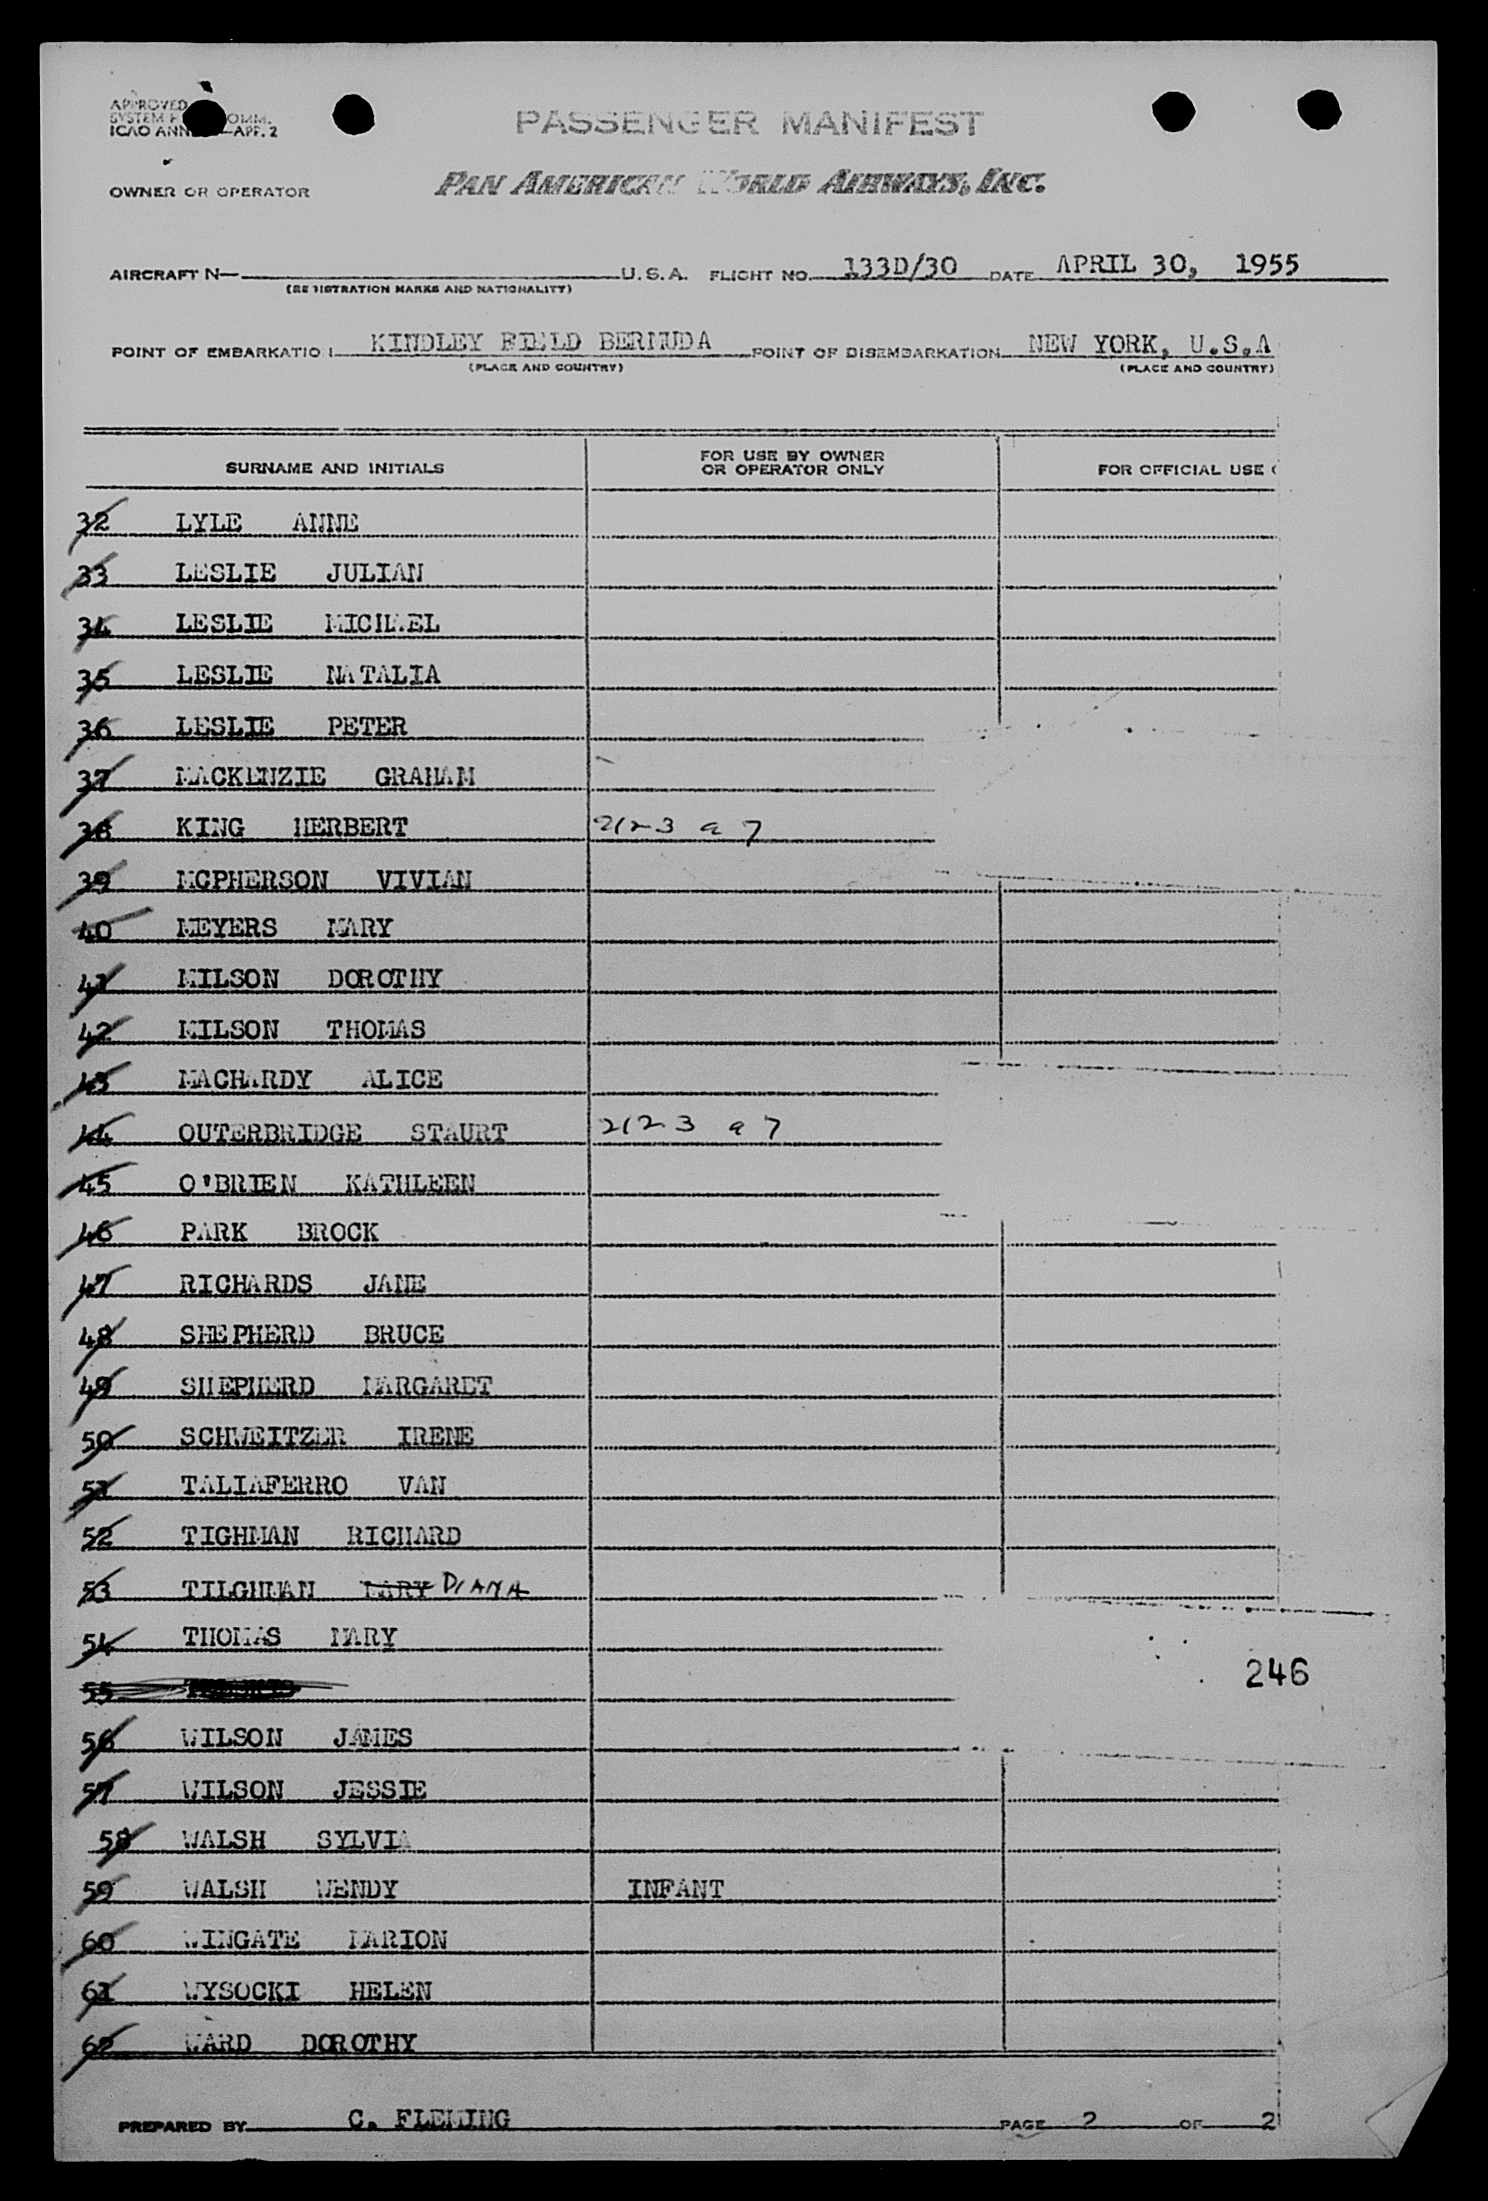 APPROVED
SYSTEM OMM.
ICAO ANN —APP. 2
PASSENGER MANIFEST
OWNER OR OPERATOR PAN AMERICAN WORLD AIRWAYS, INC.
AIRCRAFT N— U.S.A. FLIGHT NO. 133D/30 DATE APRIL 30, 1955
(REGISTRATION MARKS AND NATIONALITY)
POINT OF EMBARKATION KINDLEY FIELD BERMUDA POINT OF DISEMBARKATION NEW YORK, U.S.A
(PLACE AND COUNTRY) (PLACE AND COUNTRY)
SURNAME AND INITIALS FOR USE BY OWNER OR OPERATOR ONLY FOR OFFICIAL USE
32 LYLE ANNE
33 LESLIE JULIAN
34 LESLIE MICHAEL
35 LESLIE NATALIA
36 LESLIE PETER
37 MACKENZIE GRAHAM
38 KING HERBERT 2123 a 7
39 MCPHERSON VIVIAN
40 MEYERS MARY
41 MILSON DOROTHY
42 MILSON THOMAS
43 MACHARDY ALICE
44 OUTERBRIDGE STAURT 2123 a 7
45 O'BRIEN KATHLEEN
46 PARK BROCK
47 RICHARDS JANE
48 SHEPHERD BRUCE
49 SHEPHERD MARGARET
50 SCHWEITZER IRENE
51 TALIAFERRO VAN
52 TIGHMAN RICHARD
53 TILGHMAN MARY DIANA
54 THOMAS MARY
55
246
56 WILSON JAMES
57 WILSON JESSIE
58 WALSH SYLVIA
59 WALSH WENDY INFANT
60 WINGATE MARION
61 WYSOCKI HELEN
62 WARD DOROTHY
PREPARED BY C. FLEMING PAGE 2 OF 2